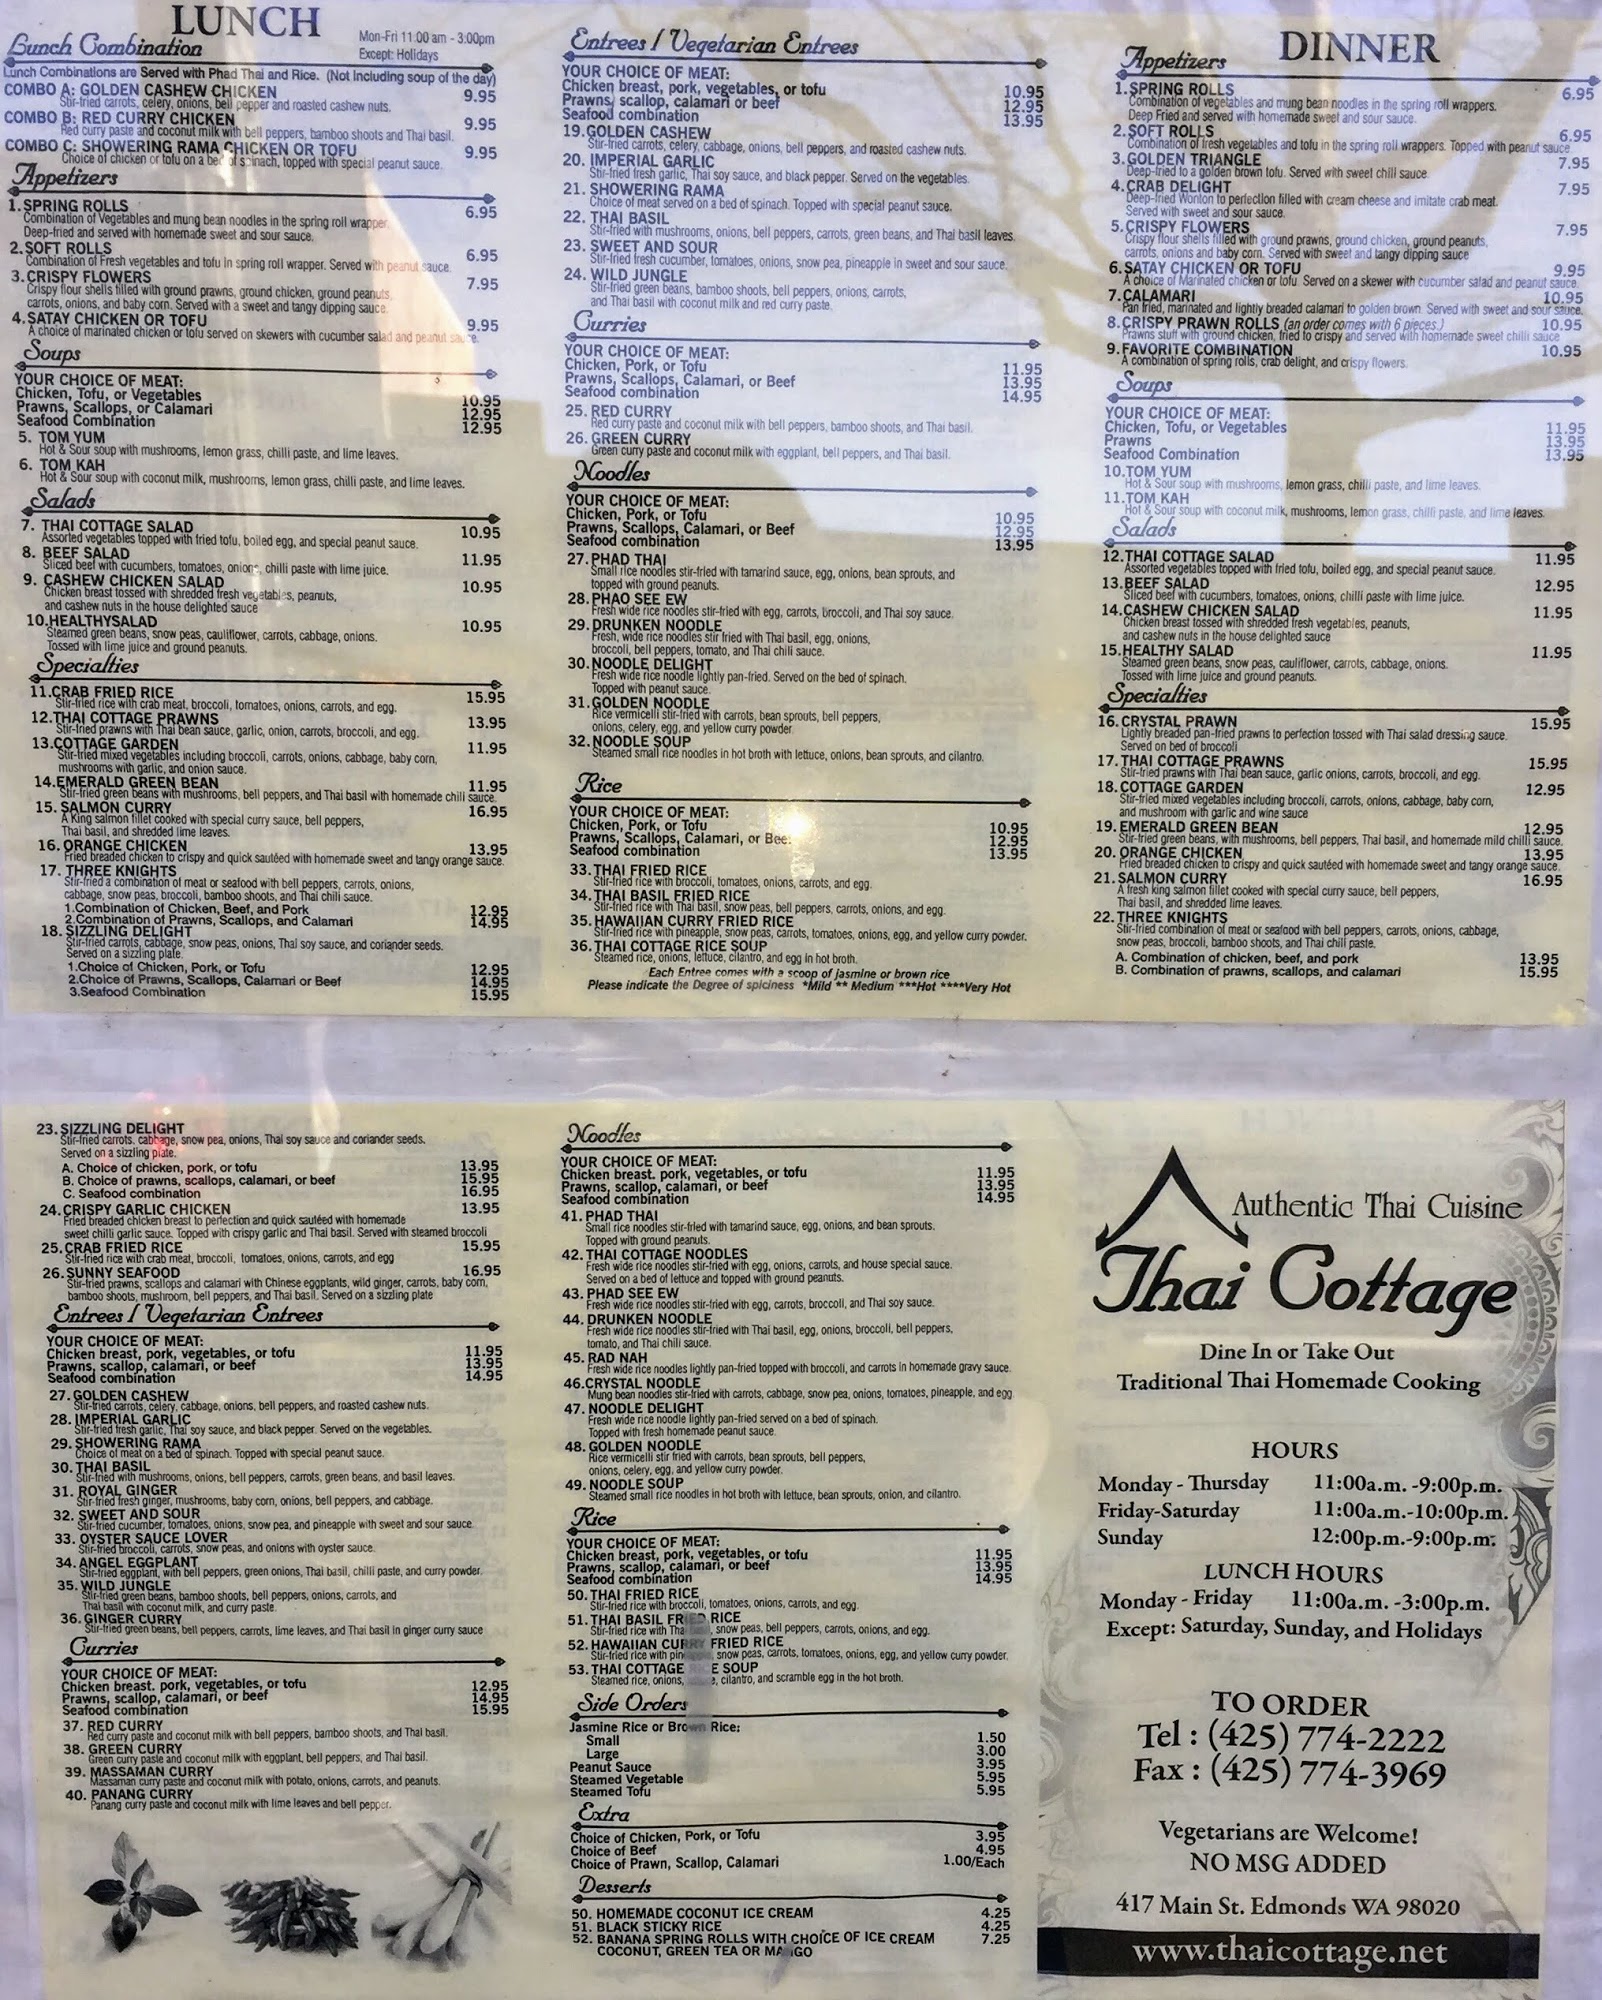 LUNCH
Mon-Fri 11:00 am - 3:00pm
Except: Holidays
Lunch Combination
Lunch Combinations are Served with Phad Thai and Rice. (Not Including soup of the day)
COMBO A: GOLDEN CASHEW CHICKEN 9.95
Stir-fried carrots, celery, onions, bell pepper and roasted cashew nuts.
COMBO B: RED CURRY CHICKEN 9.95
Red curry paste and coconut milk with bell peppers, bamboo shoots and Thai basil.
COMBO C: SHOWERING RAMA CHICKEN OR TOFU 9.95
Choice of chicken or tofu on a bed of spinach, topped with special peanut sauce.
Appetizers
1. SPRING ROLLS 6.95
Combination of Vegetables and mung bean noodles in the spring roll wrapper.
Deep-fried and served with homemade sweet and sour sauce.
2. SOFT ROLLS 6.95
Combination of Fresh vegetables and tofu in spring roll wrapper. Served with peanut sauce.
3. CRISPY FLOWERS 7.95
Crispy flour shells filled with ground prawns, ground chicken, ground peanuts,
carrots, onions, and baby corn. Served with a sweet and tangy dipping sauce.
4. SATAY CHICKEN OR TOFU 9.95
A choice of marinated chicken or tofu served on skewers with cucumber salad and peanut sauce.
Soups
YOUR CHOICE OF MEAT:
Chicken, Tofu, or Vegetables 10.95
Prawns, Scallops, or Calamari 12.95
Seafood Combination 12.95
5. TOM YUM
Hot & Sour soup with mushrooms, lemon grass, chilli paste, and lime leaves.
6. TOM KAH
Hot & Sour soup with coconut milk, mushrooms, lemon grass, chilli paste, and lime leaves.
Salads
7. THAI COTTAGE SALAD 10.95
Assorted vegetables topped with fried tofu, boiled egg, and special peanut sauce.
8. BEEF SALAD 11.95
Sliced beef with cucumbers, tomatoes, onions, chilli paste with lime juice.
9. CASHEW CHICKEN SALAD 10.95
Chicken breast tossed with shredded fresh vegetables, peanuts,
and cashew nuts in the house delighted sauce
10. HEALTHYSALAD 10.95
Steamed green beans, snow peas, cauliflower, carrots, cabbage, onions.
Tossed with lime juice and ground peanuts.
Specialties
11. CRAB FRIED RICE 15.95
Stir-fried rice with crab meat, broccoli, tomatoes, onions, carrots, and egg.
12. THAI COTTAGE PRAWNS 13.95
Stir-fried prawns with Thai bean sauce, garlic, onion, carrots, broccoli, and egg.
13. COTTAGE GARDEN 11.95
Stir-fried mixed vegetables including broccoli, carrots, onions, cabbage, baby corn,
mushrooms with garlic, and onion sauce.
14. EMERALD GREEN BEAN 11.95
Stir-fried green beans with mushrooms, bell peppers, and Thai basil with homemade chili sauce.
15. SALMON CURRY 16.95
A King salmon fillet cooked with special curry sauce, bell peppers,
Thai basil, and shredded lime leaves.
16. ORANGE CHICKEN 13.95
Fried breaded chicken to crispy and quick sautéed with homemade sweet and tangy orange sauce.
17. THREE KNIGHTS
Stir-fried a combination of meat or seafood with bell peppers, carrots, onions,
cabbage, snow peas, broccoli, bamboo shoots, and Thai chili sauce.
1.Combination of Chicken, Beef, and Pork 12.95
2.Combination of Prawns, Scallops, and Calamari 14.95
18. SIZZLING DELIGHT
Stir-fried carrots, cabbage, snow peas, onions, Thai soy sauce, and coriander seeds.
Served on a sizzling plate.
1.Choice of Chicken, Pork, or Tofu 12.95
2.Choice of Prawns, Scallops, Calamari or Beef 14.95
3.Seafood Combination 15.95
Entrees / Vegetarian Entrees
YOUR CHOICE OF MEAT:
Chicken breast, pork, vegetables, or tofu 10.95
Prawns, scallop, calamari or beef 12.95
Seafood combination 13.95
19. GOLDEN CASHEW
Stir-fried carrots, celery, cabbage, onions, bell peppers, and roasted cashew nuts.
20. IMPERIAL GARLIC
Stir-fried fresh garlic, Thai soy sauce, and black pepper. Served on the vegetables.
21. SHOWERING RAMA
Choice of meat served on a bed of spinach. Topped with special peanut sauce.
22. THAI BASIL
Stir-fried with mushrooms, onions, bell peppers, carrots, green beans, and Thai basil leaves.
23. SWEET AND SOUR
Stir-fried fresh cucumber, tomatoes, onions, snow pea, pineapple in sweet and sour sauce.
24. WILD JUNGLE
Stir-fried green beans, bamboo shoots, bell peppers, onions, carrots,
and Thai basil with coconut milk and red curry paste.
Curries
YOUR CHOICE OF MEAT:
Chicken, Pork, or Tofu 11.95
Prawns, Scallops, Calamari, or Beef 13.95
Seafood combination 14.95
25. RED CURRY
Red curry paste and coconut milk with bell peppers, bamboo shoots, and Thai basil.
26. GREEN CURRY
Green curry paste and coconut milk with eggplant, bell peppers, and Thai basil.
Noodles
YOUR CHOICE OF MEAT:
Chicken, Pork, or Tofu 10.95
Prawns, Scallops, Calamari, or Beef 12.95
Seafood combination 13.95
27. PHAD THAI
Small rice noodles stir-fried with tamarind sauce, egg, onions, bean sprouts, and
topped with ground peanuts.
28. PHAO SEE EW
Fresh wide rice noodles stir-fried with egg, carrots, broccoli, and Thai soy sauce.
29. DRUNKEN NOODLE
Fresh, wide rice noodles stir fried with Thai basil, egg, onions,
broccoli, bell peppers, tomato, and Thai chili sauce.
30. NOODLE DELIGHT
Fresh wide rice noodle lightly pan-fried. Served on the bed of spinach.
Topped with peanut sauce.
31. GOLDEN NOODLE
Rice vermicelli stir-fried with carrots, bean sprouts, bell peppers,
onions, celery, egg, and yellow curry powder
32. NOODLE SOUP
Steamed small rice noodles in hot broth with lettuce, onions, bean sprouts, and cilantro.
Rice
YOUR CHOICE OF MEAT:
Chicken, Pork, or Tofu 10.95
Prawns, Scallops, Calamari, or Bee 12.95
Seafood combination 13.95
33. THAI FRIED RICE
Stir-fried rice with broccoli, tomatoes, onions, carrots, and egg.
34. THAI BASIL FRIED RICE
Stir-fried rice with Thai basil, snow peas, bell peppers, carrots, onions, and egg.
35. HAWAIIAN CURRY FRIED RICE
Stir-fried rice with pineapple, snow peas, carrots, tomatoes, onions, egg, and yellow curry powder.
36. THAI COTTAGE RICE SOUP
Steamed rice, onions, lettuce, cilantro, and egg in hot broth.
Each Entree comes with a scoop of jasmine or brown rice
Please indicate the Degree of spiciness *Mild ** Medium ***Hot ****Very Hot
DINNER
Appetizers
1. SPRING ROLLS 6.95
Combination of vegetables and mung bean noodles in the spring roll wrappers.
Deep Fried and served with homemade sweet and sour sauce.
2. SOFT ROLLS 6.95
Combination of fresh vegetables and tofu in the spring roll wrappers. Topped with peanut sauce
3. GOLDEN TRIANGLE 7.95
Deep-fried to a golden brown tofu. Served with sweet chili sauce.
4. CRAB DELIGHT 7.95
Deep-fried Wonton to perfection filled with cream cheese and imitate crab meat.
Served with sweet and sour sauce.
5. CRISPY FLOWERS 7.95
Crispy flour shells filled with ground prawns, ground chicken, ground peanuts,
carrots, onions and baby corn. Served with sweet and tangy dipping sauce
6. SATAY CHICKEN OR TOFU 9.95
A choice of Marinated chicken or tofu. Served on a skewer with cucumber salad and peanut sauce.
7. CALAMARI 10.95
Pan fried, marinated and lightly breaded calamari to golden brown. Served with sweet and sour sauce.
8. CRISPY PRAWN ROLLS (an order comes with 6 pieces.) 10.95
Prawns stuff with ground chicken, fried to crispy and served with homemade sweet chilli sauce
9. FAVORITE COMBINATION 10.95
A combination of spring rolls, crab delight, and crispy flowers.
Soups
YOUR CHOICE OF MEAT:
Chicken, Tofu, or Vegetables 11.95
Prawns 13.95
Seafood Combination 13.95
10. TOM YUM
Hot & Sour soup with mushrooms, lemon grass, chilli paste, and lime leaves.
11. TOM KAH
Hot & Sour soup with coconut milk, mushrooms, lemon grass, chilli paste, and lime leaves.
Salads
12. THAI COTTAGE SALAD 11.95
Assorted vegetables topped with fried tofu, boiled egg, and special peanut sauce.
13. BEEF SALAD 12.95
Sliced beef with cucumbers, tomatoes, onions, chilli paste with lime juice.
14. CASHEW CHICKEN SALAD 11.95
Chicken breast tossed with shredded fresh vegetables, peanuts,
and cashew nuts in the house delighted sauce
15. HEALTHY SALAD 11.95
Steamed green beans, snow peas, cauliflower, carrots, cabbage, onions.
Tossed with lime juice and ground peanuts.
Specialties
16. CRYSTAL PRAWN 15.95
Lightly breaded pan-fried prawns to perfection tossed with Thai salad dressing sauce.
Served on bed of broccoli
17. THAI COTTAGE PRAWNS 15.95
Stir-fried prawns with Thai bean sauce, garlic onions, carrots, broccoli, and egg.
18. COTTAGE GARDEN 12.95
Stir-fried mixed vegetables including broccoli, carrots, onions, cabbage, baby corn,
and mushroom with garlic and wine sauce
19. EMERALD GREEN BEAN 12.95
Stir-fried green beans, with mushrooms, bell peppers, Thai basil, and homemade mild chilli sauce.
20. ORANGE CHICKEN 13.95
Fried breaded chicken to crispy and quick sautéed with homemade sweet and tangy orange sauce.
21. SALMON CURRY 16.95
A fresh king salmon fillet cooked with special curry sauce, bell peppers,
Thai basil, and shredded lime leaves.
22. THREE KNIGHTS
Stir-fried combination of meat or seafood with bell peppers, carrots, onions, cabbage,
snow peas, broccoli, bamboo shoots, and Thai chili paste.
A. Combination of chicken, beef, and pork 13.95
B. Combination of prawns, scallops, and calamari 15.95
23. SIZZLING DELIGHT
Stir-fried carrots, cabbage, snow pea, onions, Thai soy sauce and coriander seeds.
Served on a sizzling plate.
A. Choice of chicken, pork, or tofu 13.95
B. Choice of prawns, scallops, calamari, or beef 15.95
C. Seafood combination 16.95
24. CRISPY GARLIC CHICKEN 13.95
Fried breaded chicken breast to perfection and quick sautéed with homemade
sweet chilli garlic sauce. Topped with crispy garlic and Thai basil. Served with steamed broccoli
25. CRAB FRIED RICE 15.95
Stir-fried rice with crab meat, broccoli, tomatoes, onions, carrots, and egg
26. SUNNY SEAFOOD 16.95
Stir-fried prawns, scallops and calamari with Chinese eggplants, wild ginger, carrots, baby corn,
bamboo shoots, mushroom, bell peppers, and Thai basil. Served on a sizzling plate
Entrees / Vegetarian Entrees
YOUR CHOICE OF MEAT:
Chicken breast, pork, vegetables, or tofu 11.95
Prawns, scallop, calamari, or beef 13.95
Seafood combination 14.95
27. GOLDEN CASHEW
Stir-fried carrots, celery, cabbage, onions, bell peppers, and roasted cashew nuts.
28. IMPERIAL GARLIC
Stir-fried fresh garlic, Thai soy sauce, and black pepper. Served on the vegetables.
29. SHOWERING RAMA
Choice of meat on a bed of spinach. Topped with special peanut sauce.
30. THAI BASIL
Stir-fried with mushrooms, onions, bell peppers, carrots, green beans, and basil leaves.
31. ROYAL GINGER
Stir-fried fresh ginger, mushrooms, baby corn, onions, bell peppers, and cabbage.
32. SWEET AND SOUR
Stir-fried cucumber, tomatoes, onions, snow pea, and pineapple with sweet and sour sauce.
33. OYSTER SAUCE LOVER
Stir-fried broccoli, carrots, snow peas, and onions with oyster sauce.
34. ANGEL EGGPLANT
Stir-fried eggplant, with bell peppers, green onions, Thai basil, chilli paste, and curry powder.
35. WILD JUNGLE
Stir-fried green beans, bamboo shoots, bell peppers, onions, carrots, and
Thai basil with coconut milk, and curry paste.
36. GINGER CURRY
Stir-fried green beans, bell peppers, carrots, lime leaves, and Thai basil in ginger curry sauce
Curries
YOUR CHOICE OF MEAT:
Chicken breast. pork, vegetables, or tofu 12.95
Prawns, scallop, calamari, or beef 14.95
Seafood combination 15.95
37. RED CURRY
Red curry paste and coconut milk with bell peppers, bamboo shoots, and Thai basil.
38. GREEN CURRY
Green curry paste and coconut milk with eggplant, bell peppers, and Thai basil.
39. MASSAMAN CURRY
Massaman curry paste and coconut milk with potato, onions, carrots, and peanuts.
40. PANANG CURRY
Panang curry paste and coconut milk with lime leaves and bell pepper.
Noodles
YOUR CHOICE OF MEAT:
Chicken breast. pork, vegetables, or tofu 11.95
Prawns, scallop, calamari, or beef 13.95
Seafood combination 14.95
41. PHAD THAI
Small rice noodles stir-fried with tamarind sauce, egg, onions, and bean sprouts.
Topped with ground peanuts.
42. THAI COTTAGE NOODLES
Fresh wide rice noodles stir-fried with egg, onions, carrots, and house special sauce.
Served on a bed of lettuce and topped with ground peanuts.
43. PHAD SEE EW
Fresh wide rice noodles stir-fried with egg, carrots, broccoli, and Thai soy sauce.
44. DRUNKEN NOODLE
Fresh wide rice noodles stir-fried with Thai basil, egg, onions, broccoli, bell peppers,
tomato, and Thai chili sauce.
45. RAD NAH
Fresh wide rice noodles lightly pan-fried topped with broccoli, and carrots in homemade gravy sauce.
46. CRYSTAL NOODLE
Mung bean noodles stir-fried with carrots, cabbage, snow pea, onions, tomatoes, pineapple, and egg
47. NOODLE DELIGHT
Fresh wide rice noodle lightly pan-fried served on a bed of spinach.
Topped with fresh homemade peanut sauce.
48. GOLDEN NOODLE
Rice vermicelli stir fried with carrots, bean sprouts, bell peppers,
onions, celery, egg, and yellow curry powder.
49. NOODLE SOUP
Steamed small rice noodles in hot broth with lettuce, bean sprouts, onion, and cilantro.
Rice
YOUR CHOICE OF MEAT:
Chicken breast, pork, vegetables, or tofu 11.95
Prawns, scallop, calamari, or beef 13.95
Seafood combination 14.95
50. THAI FRIED RICE
Stir-fried rice with broccoli, tomatoes, onions, carrots, and egg.
51. THAI BASIL FRIED RICE
Stir-fried rice with , snow peas, bell peppers, carrots, onions, and egg.
52. HAWAIIAN CURRY FRIED RICE
Stir-fried rice with , snow peas, carrots, tomatoes, onions, egg, and yellow curry powder.
53. THAI COTTAGE SOUP
Steamed rice, onions, , cilantro, and scramble egg in the hot broth.
Side Orders
Jasmine Rice or Brown Rice:
Small 1.50
Large 3.00
Peanut Sauce 3.95
Steamed Vegetable 5.95
Steamed Tofu 5.95
Extra
Choice of Chicken, Pork, or Tofu 3.95
Choice of Beef 4.95
Choice of Prawn, Scallop, Calamari 1.00/Each
Desserts
50. HOMEMADE COCONUT ICE CREAM 4.25
51. BLACK STICKY RICE 4.25
52. BANANA SPRING ROLLS WITH CHOICE OF ICE CREAM 7.25
COCONUT, GREEN TEA OR MANGO
Authentic Thai Cuisine
Thai Cottage
Dine In or Take Out
Traditional Thai Homemade Cooking
HOURS
Monday - Thursday 11:00a.m. -9:00p.m.
Friday-Saturday 11:00a.m.-10:00p.m.
Sunday 12:00p.m.-9:00p.m.
LUNCH HOURS
Monday - Friday 11:00a.m. -3:00p.m.
Except: Saturday, Sunday, and Holidays
TO ORDER
Tel : (425) 774-2222
Fax : (425) 774-3969
Vegetarians are Welcome!
NO MSG ADDED
417 Main St. Edmonds WA 98020
www.thaicottage.net